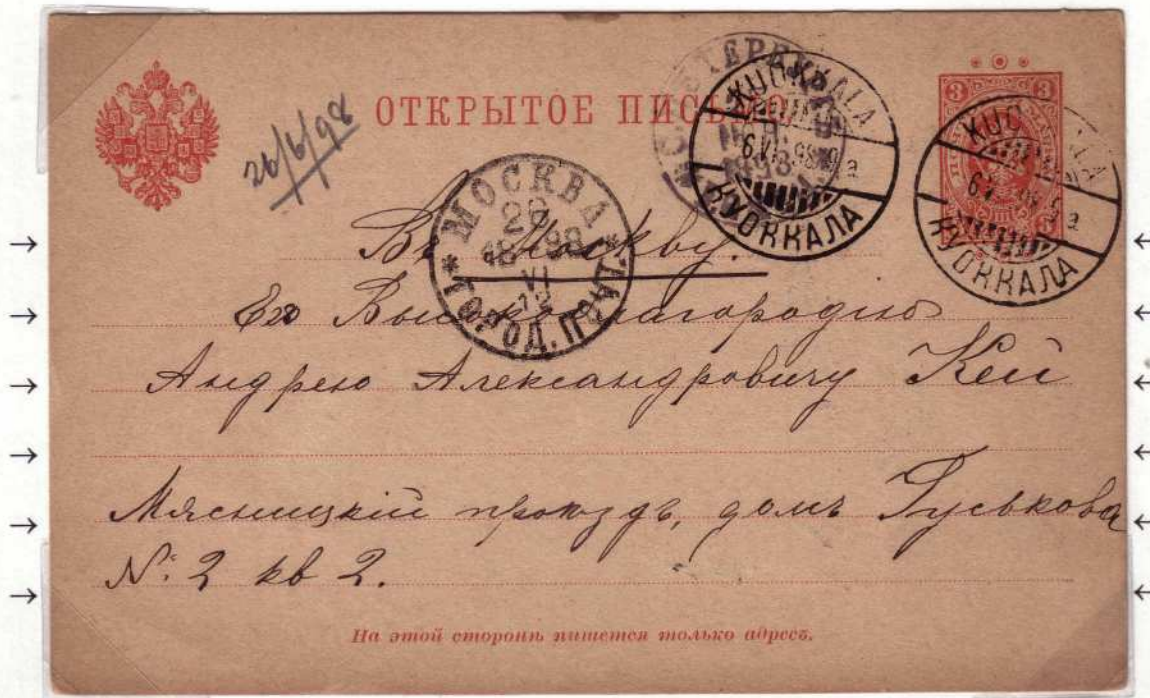 26/6/98
ОТКРЫТОЕ ПИСЬМО.
3 3
KUOKKALA
6 VI 98 9a
КУОККАЛА
KUOKKALA
КУОККАЛА
МОСКВА
26
VI
12
ГОРОД. ПОЧТА
Въ Москву.
Его Высокоблагородію
Андрею Александровичу Кей
Мясницкій проѣздъ, домъ Гуськова
№: 2 кв 2.
На этой сторонѣ пишется только адресъ.